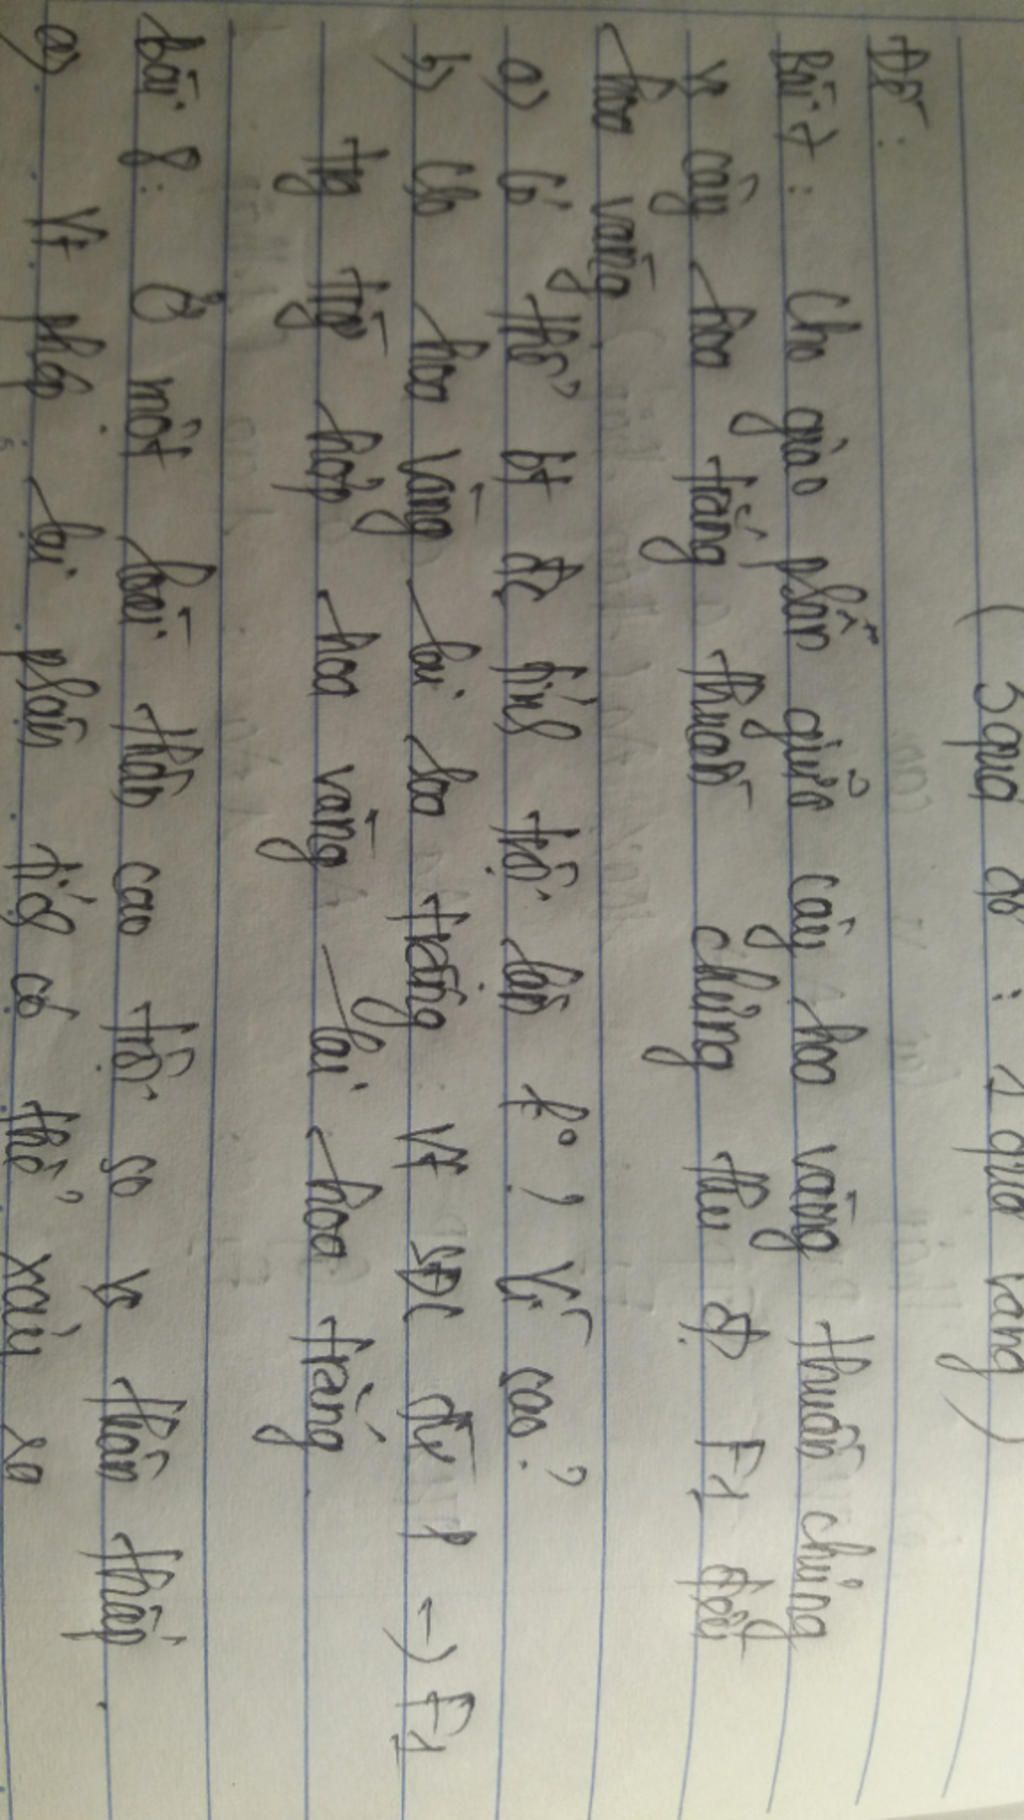 (3 quả đỏ : 1 quả vàng)
Đề:
Bài 7: Cho giao phấn giữa cây hoa vàng thuần chủng
vs cây hoa trắng thuần chủng thu đc F1 đều
hoa vàng.
a) Có thể bt đc tính trội lặn k°? Vì sao?
b) Cho hoa vàng lai hoa trắng. Vt SĐL từ P → F1
trg trg hợp hoa vàng lai hoa trắng.
Bài 8: Ở một loài thân cao trội so vs thân thấp.
a) Vt phép lai phân tích có thể xảy ra